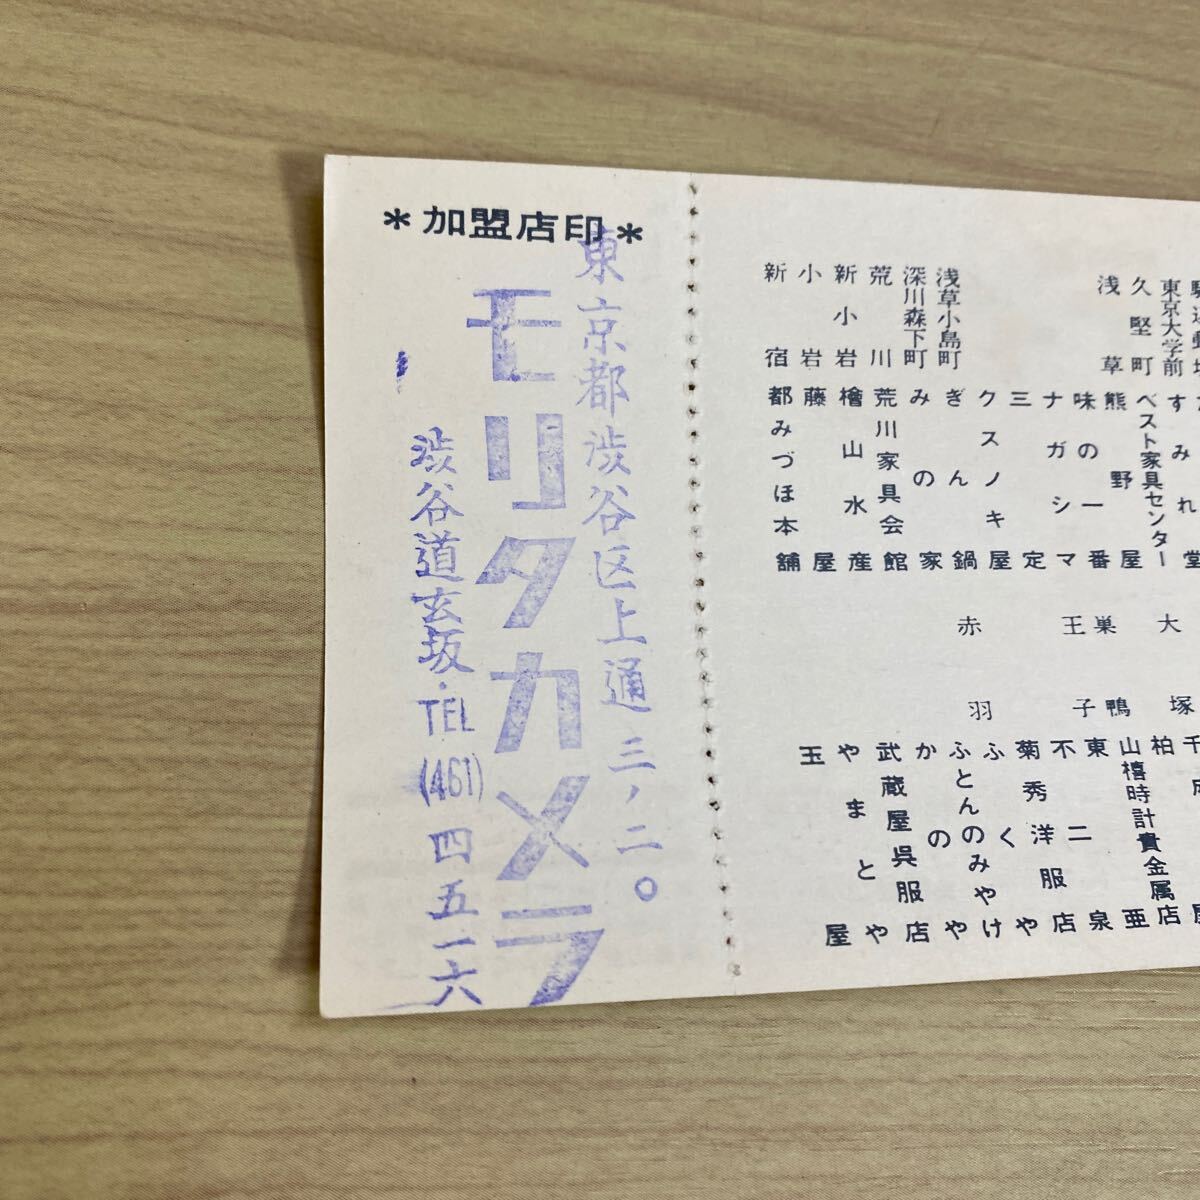 ＊加盟店印＊
東京都渋谷区上通三ノ二〇
モリタカメラ
渋谷道玄坂・TEL(461)四五一六
すみれ堂
東京大学前 ベスト家具センター
久堅町 熊野屋
浅草 味の一番
ナガシマ
三定
クスノキ屋
浅草小島町 ぎん鍋
深川森下町 みの家
荒川 荒川家具会館
新小岩 檜山水産
小岩 藤屋
新宿 都みづほ本舗
大塚 柏屋
山禧時計貴金属店
巣鴨 東亜
王子 不二泉
菊秀洋服店
赤羽 ふくや
ふとんのみやけ
かのや
武蔵屋呉服店
やまとや
玉屋